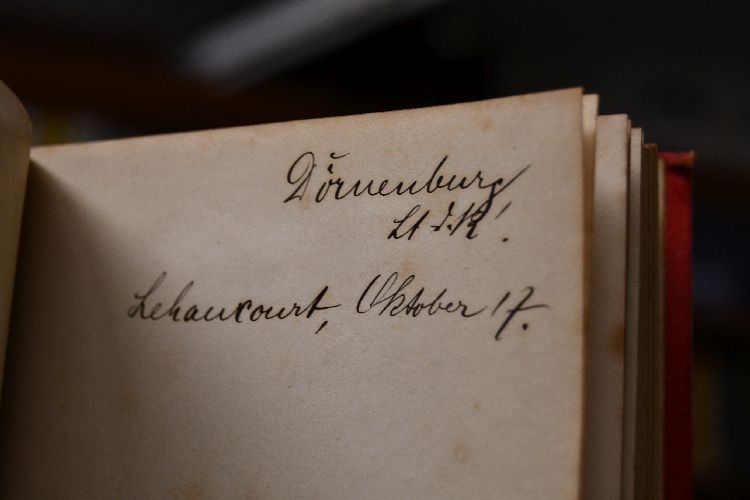 Dörnenburg
Lt d. R.
Lehaucourt, Oktober 17.